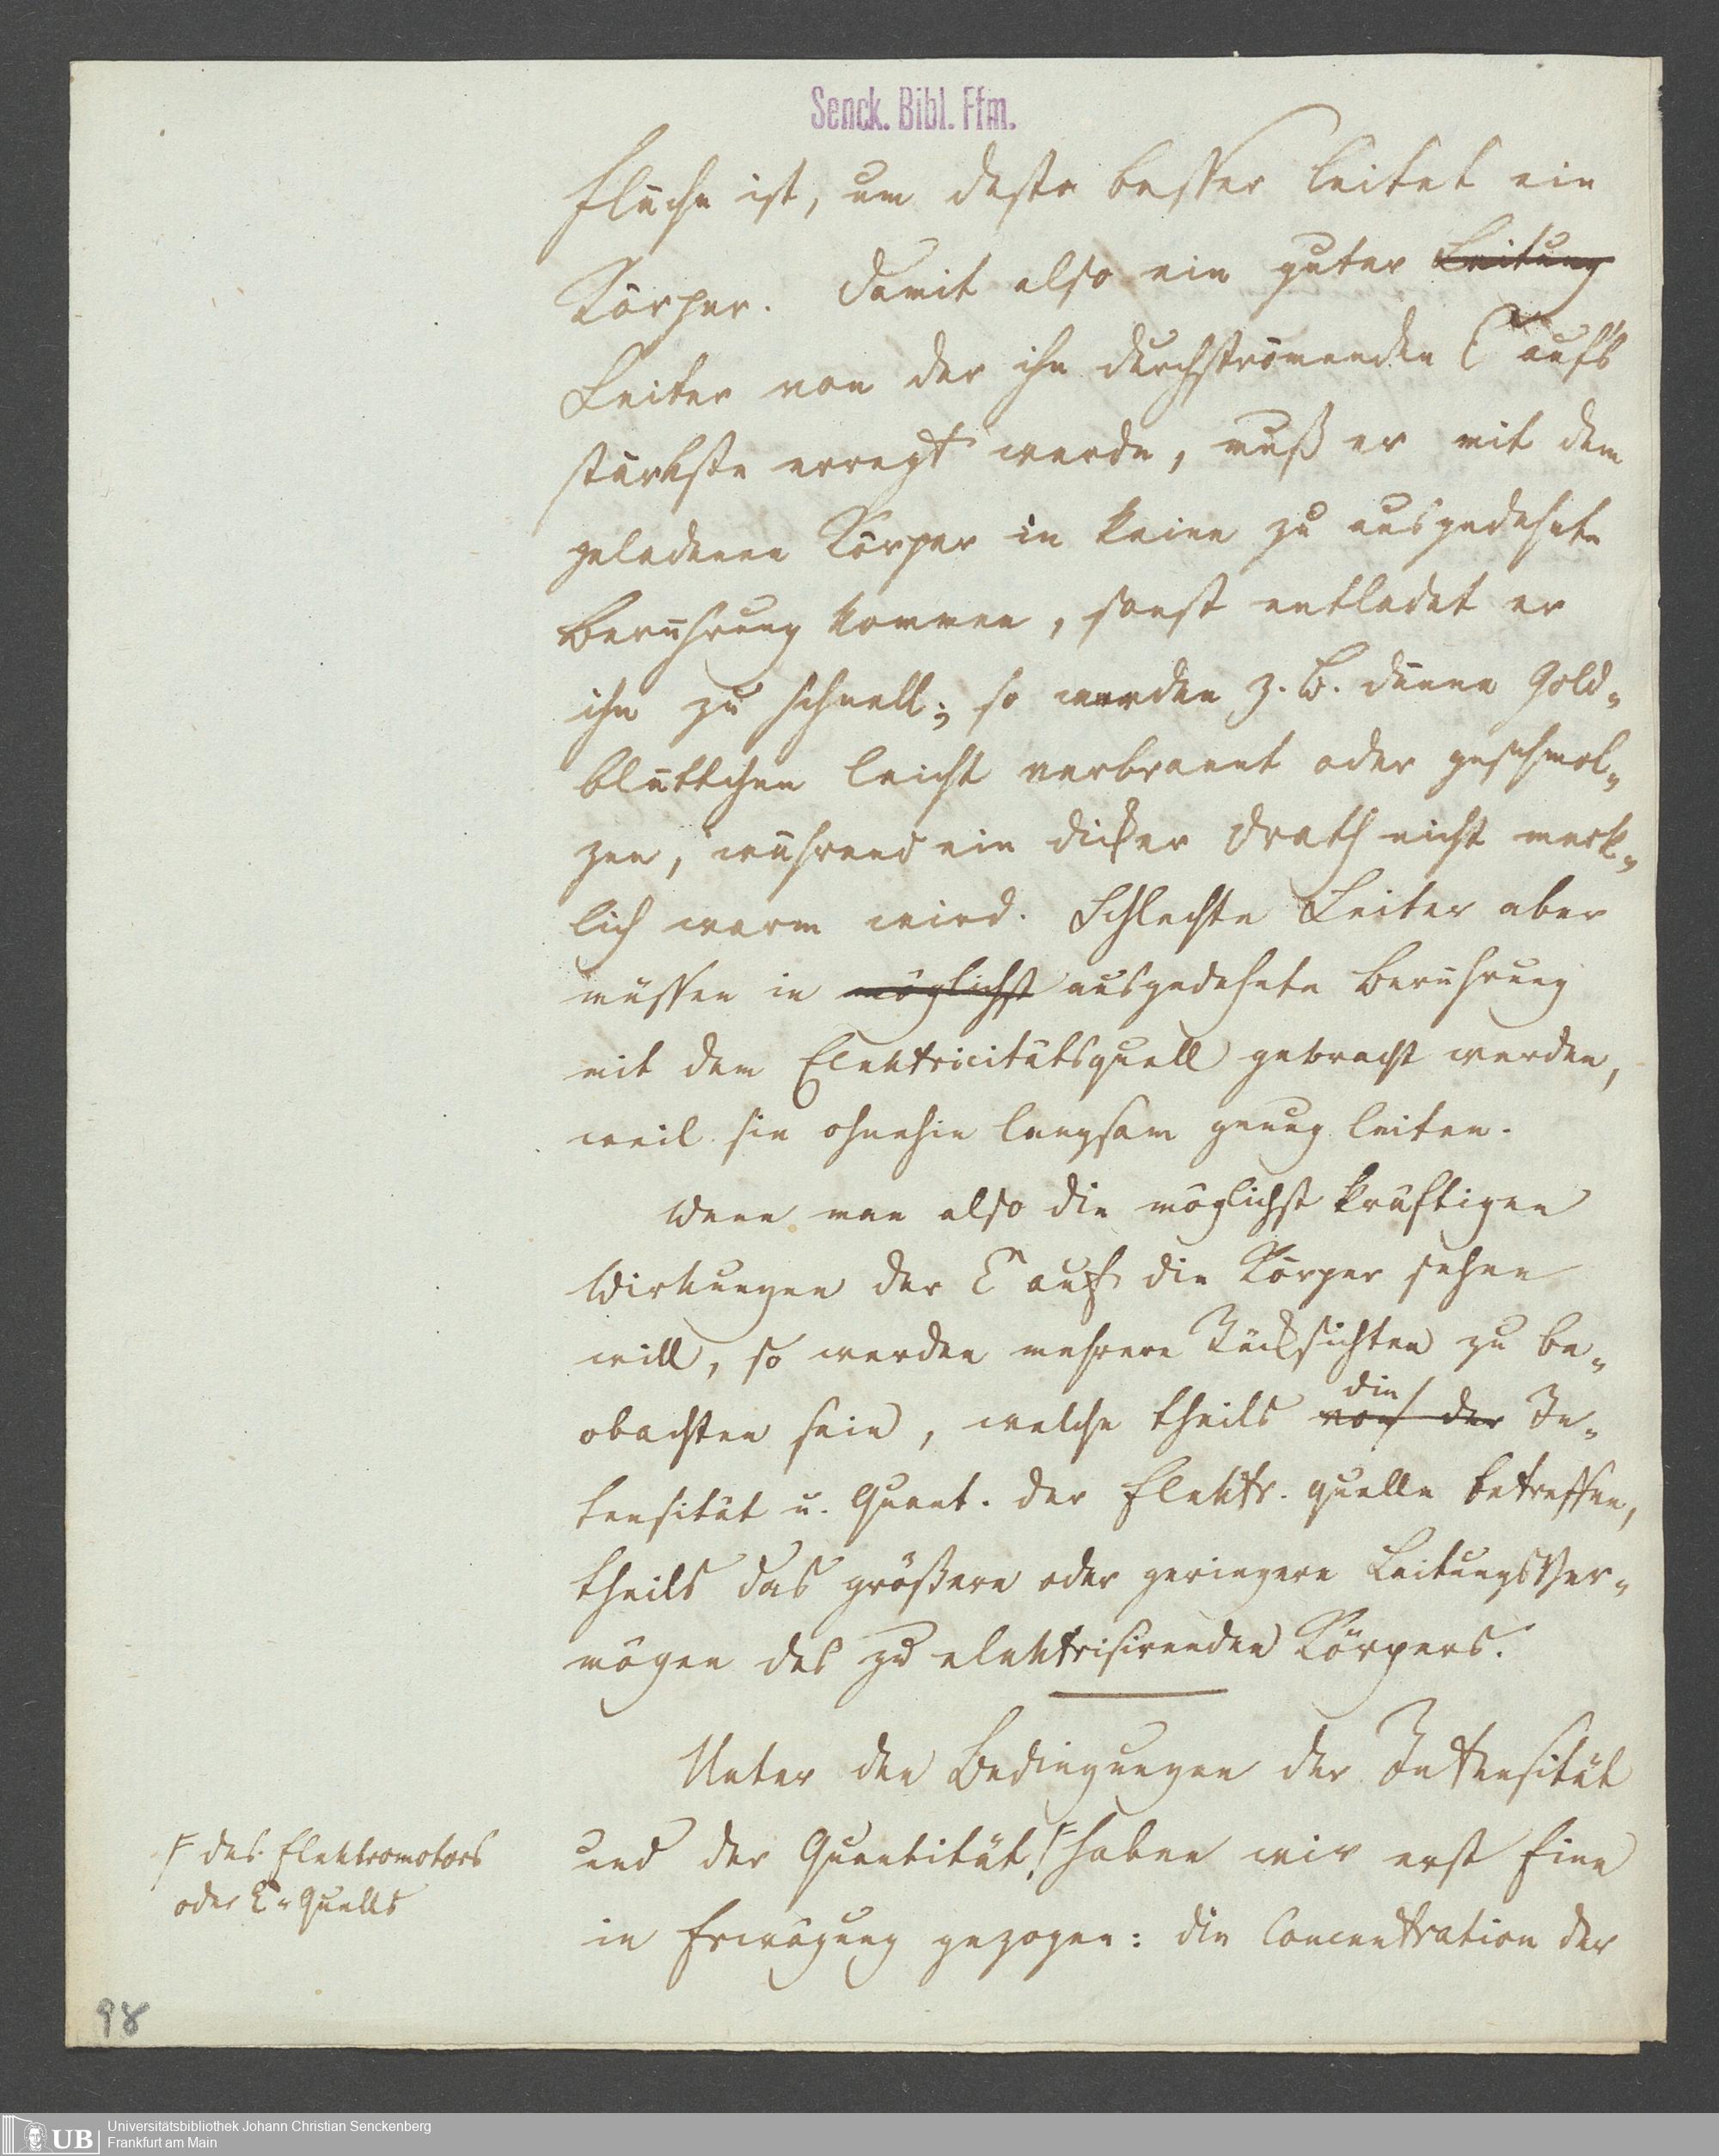 Senck. Bibl. Ffm.
fläche ist, um desto besser leitet ein
Körper. Damit also ein guter Leitung
Leiter von der ihn durchströmenden E aufs
stärkste erregt werde, muß er mit dem
geladenen Körper in keine zu ausgedehnte
Berührung kommen, sonst entladet er
ihn zu schnell; so werden z. B. dünne Gold-
blättchen leicht verbrannt oder geschmol-
zen, während ein dicker Drath nicht merk-
lich warm wird. Schlechte Leiter aber
müssen in möglichst ausgedehnte Berührung
mit dem Elektricitätsquell gebracht werden,
weil sie ohnehin langsam genug leiten.
Wenn man also die möglichst kräftigen
Wirkungen der E auf die Körper sehen
will, so werden mehrere Rücksichten zu be-
obachten sein, welche theils von der die In-
tensität u. Quant. der Elektr. quelle betreffen,
theils das größere oder geringere Leitungsver-
mögen des zu elektrisirenden Körpers.
Unter den Bedingungen der Intensität
und der Quantität, F haben wir erst Eine
in Erwägung gezogen: die Concentration der
F des Elektromotors
oder E-Quells
98
UB
Universitätsbibliothek Johann Christian Senckenberg
Frankfurt am Main